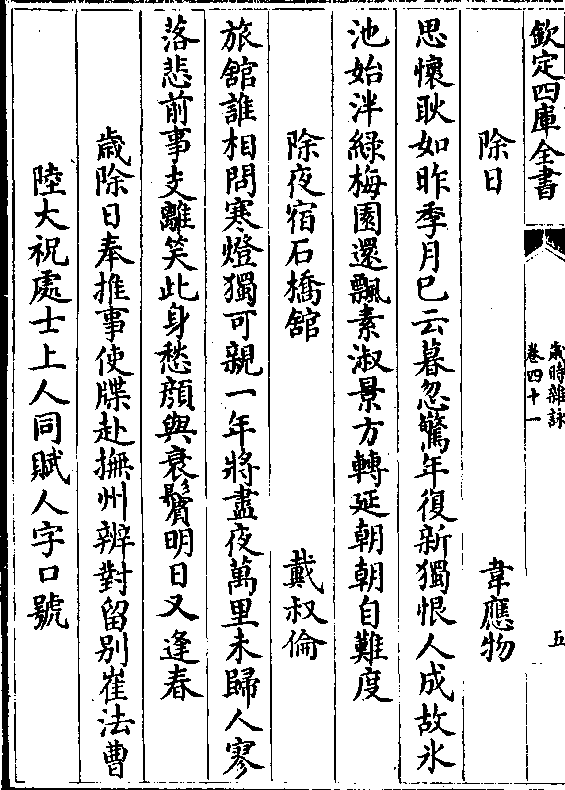 欽定四庫全書
歲時雜詠
卷四十一
五
除日 韋應物
思懷耿如昨季月已云暮忽驚年復新獨恨人成故氷
池始泮緑梅園還飄素淑景方轉延朝朝自難度
除夜宿石橋舘 戴叔倫
旅舘誰相問寒燈獨可親一年將盡夜萬里未歸人寥
落悲前事支離笑此身愁顔與衰鬢明日又逢春
歲除日奉推事使牒赴撫州辨對留别崔法曹
陸大祝處士上人同賦人字口號